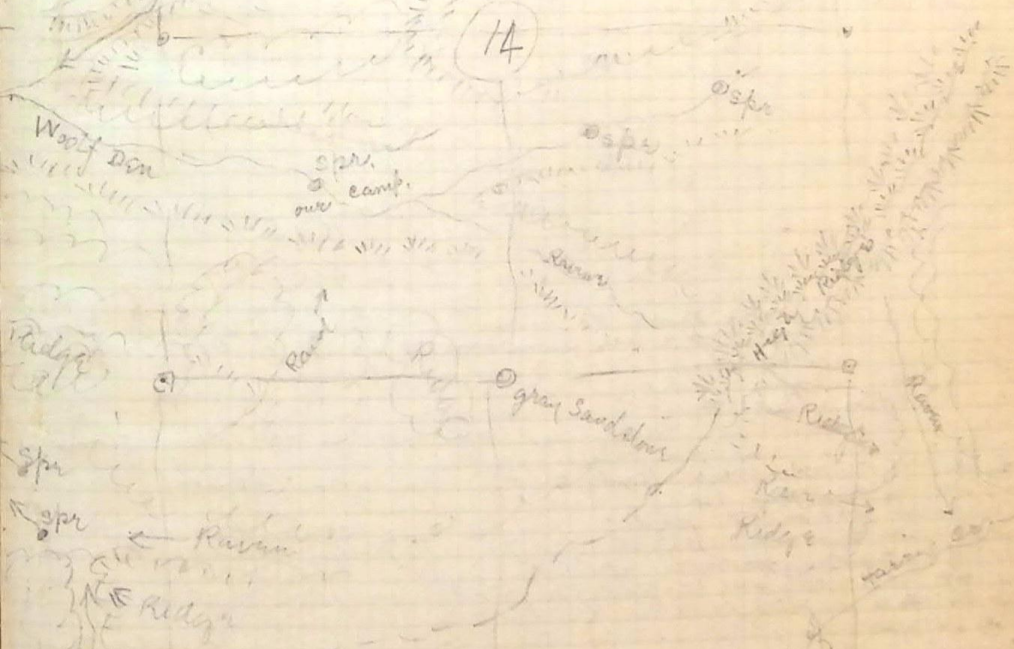 14
spr
spr
Woolf Den
Spr.
our camp.
Ravin
High Ridge
Ravin
Ridge
Ridge
gray Sandstone
Ridge
Ravin
Spr
spr
Ravin
Ridge
Ridge